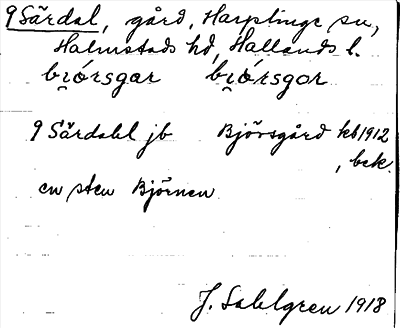 9 Särdal, gård, Harplinge sn,
Halmstads hd, Hallands l.
bi̯órsgar bi̯órsgor
9 Särdahl jb Björsgård kb 1912
, bek.
en sten Björnen
J. Sahlgren 1918